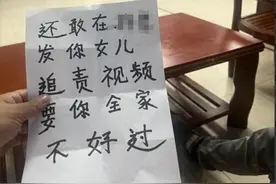 还敢在
发你女儿
追责视频
要你全家
不好过